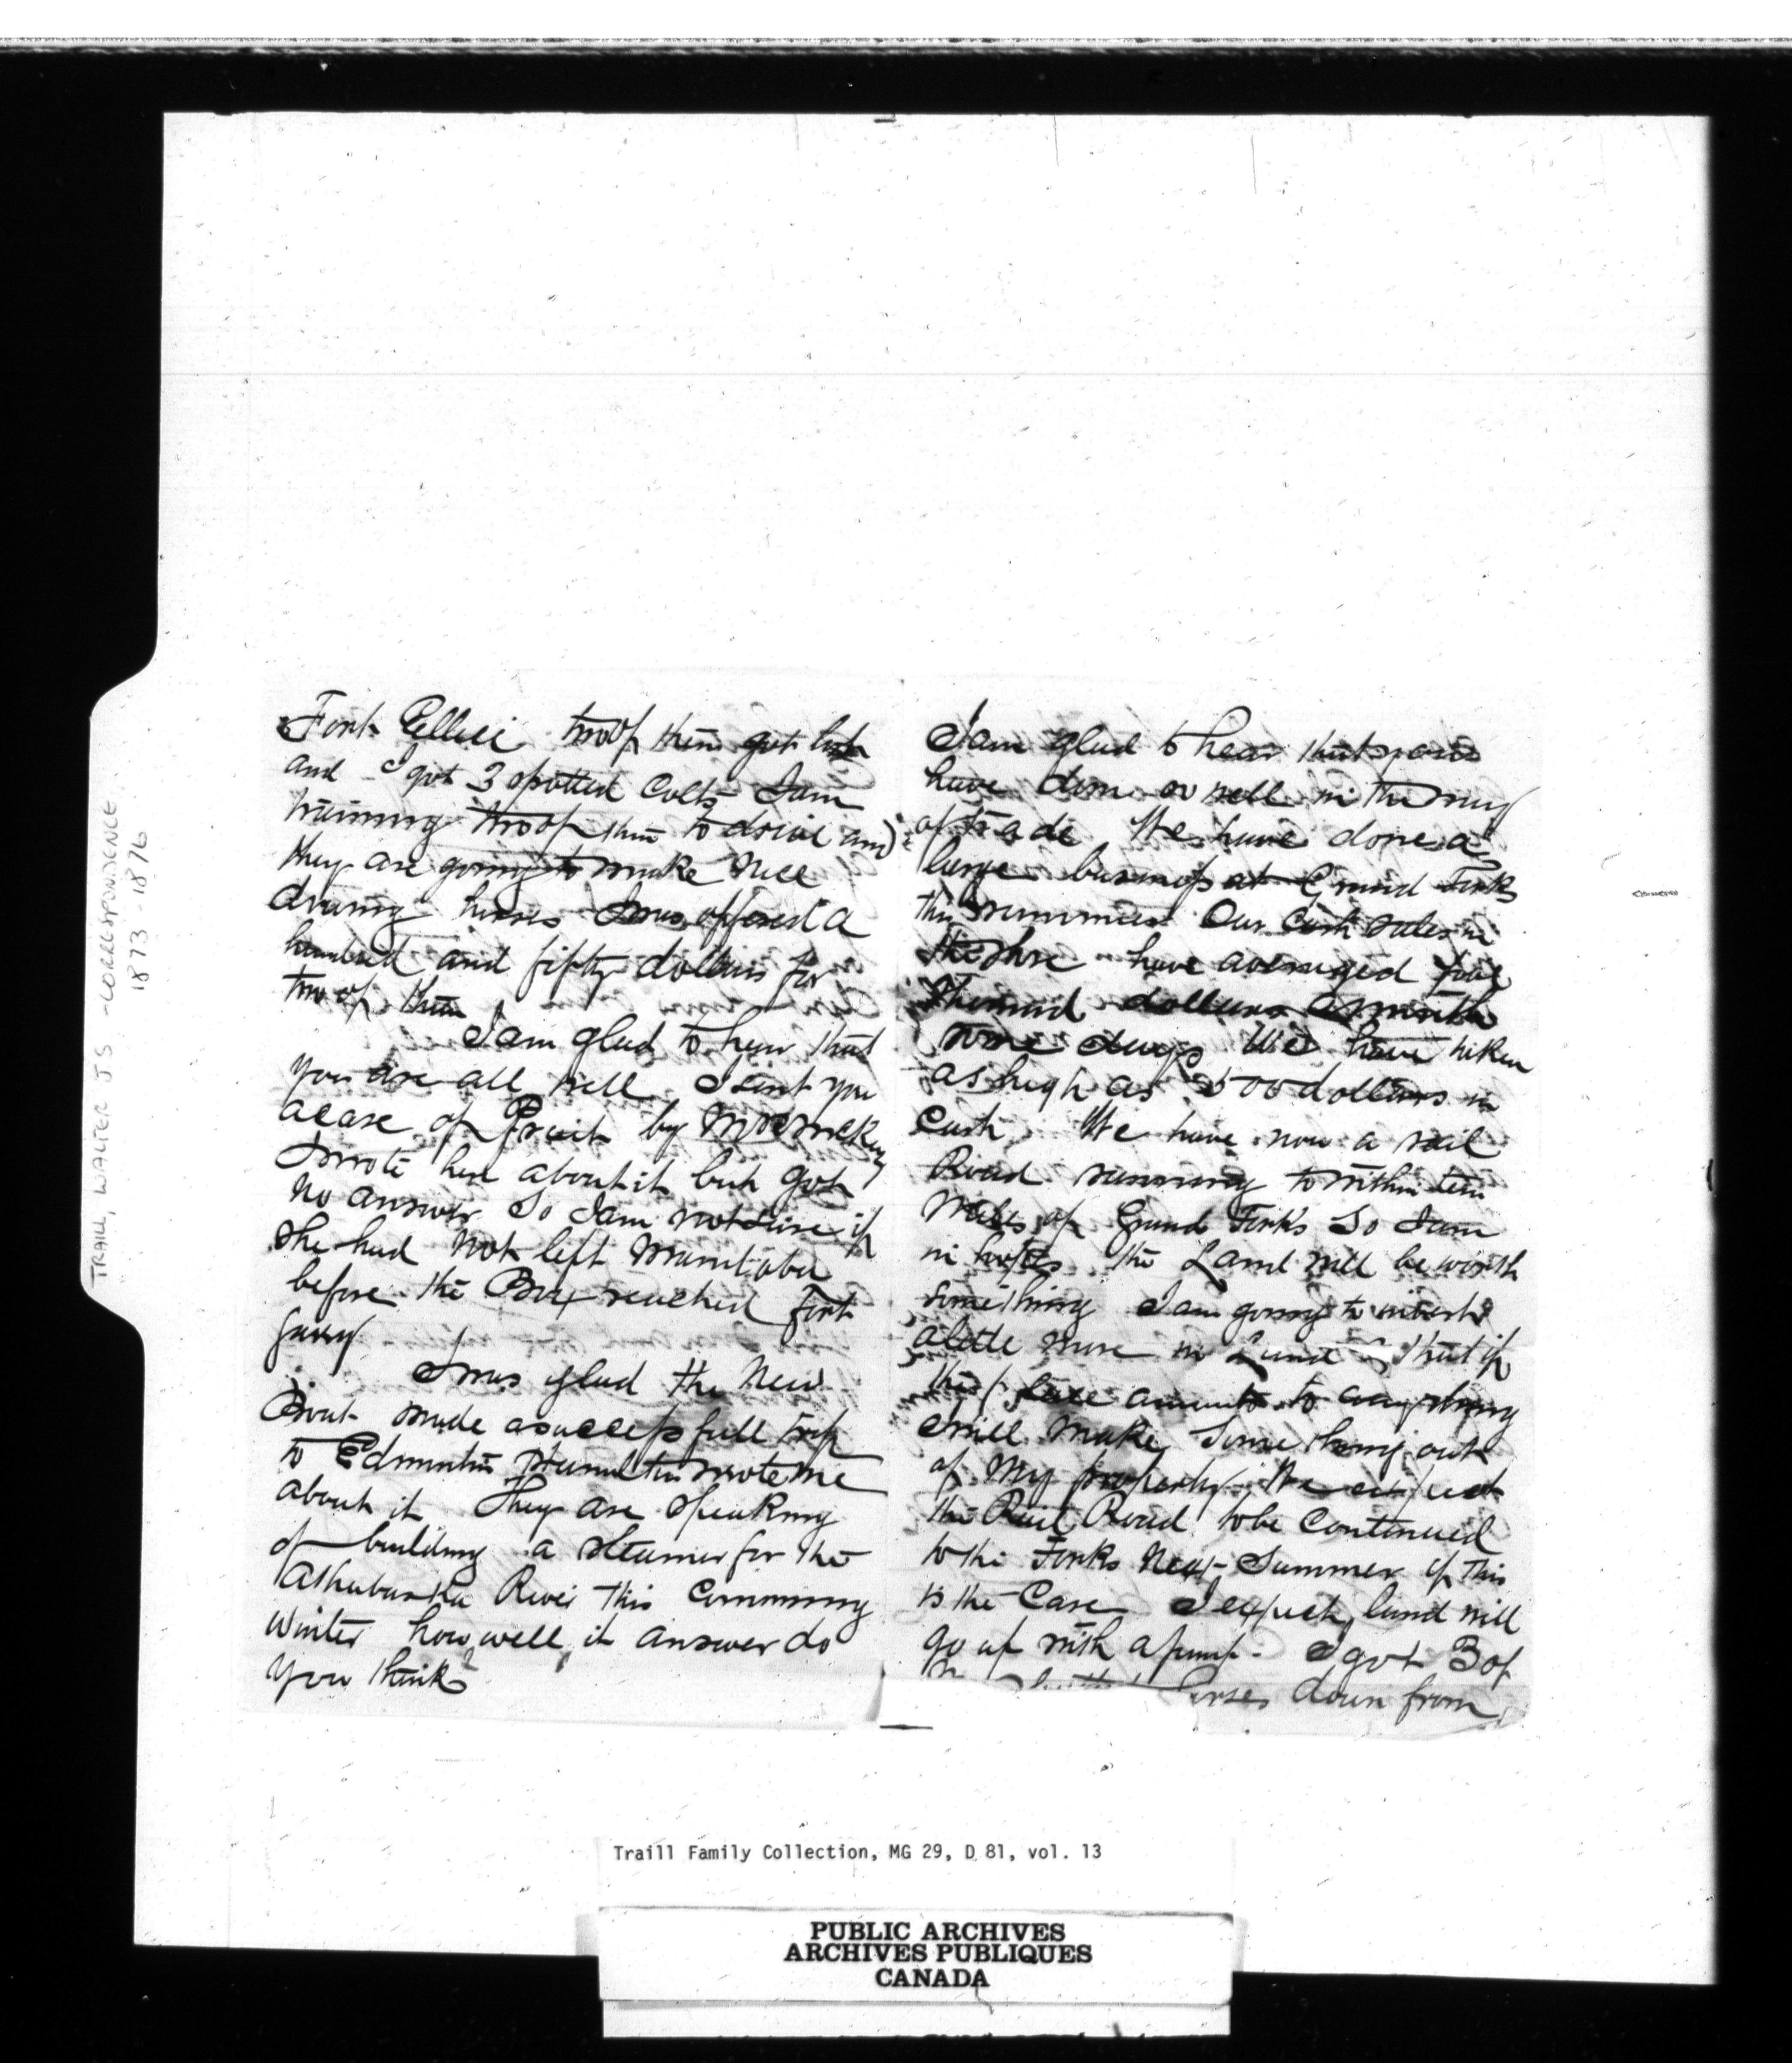 TRAILL, WALTER J S - CORRESPONDENCE
1873-1876
Fort Ellice two of them got lost
and I got 3 spotted Colts I am
training two of them to drive and
they are going to make nice
driving horses I was offered a
hundred and fifty dollars for
two of them
I am glad to hear that
you are all well I sent you
a case of Fruit by Mrs
I wrote her about it but got
no answer So I am not sure if
She had not left Manitoba
before the Box reached Fort
Garry
I was glad the New
Boat made a successfull trip
to Edmonton wrote me
about it They are speaking
of building a steamer for the
Athabaska River this Comming
Winter how well it answer do
you think
I am glad to hear that you
have done so well in the way
of trade We have done a
large business at Grand Forks
this summer Our Cash sales in
the Store have averaged five
Thousand dollars a month
some days We have taken
as high as 500 dollars in
Cash We have now a rail
Road running to within ten
Miles of Grand Forks So I am
in hopes the Land will be worth
something I am going to invest
a little more in Land that if
the place amounts to anything
I will make Something out
of My property We expect
the Rail Road to be Continued
to the Forks Next Summer if this
is the Case I expect land will
go up with a jump - I got 3 of
horses down from
Traill Family Collection, MG 29, D 81, vol. 13
PUBLIC ARCHIVES
ARCHIVES PUBLIQUES
CANADA